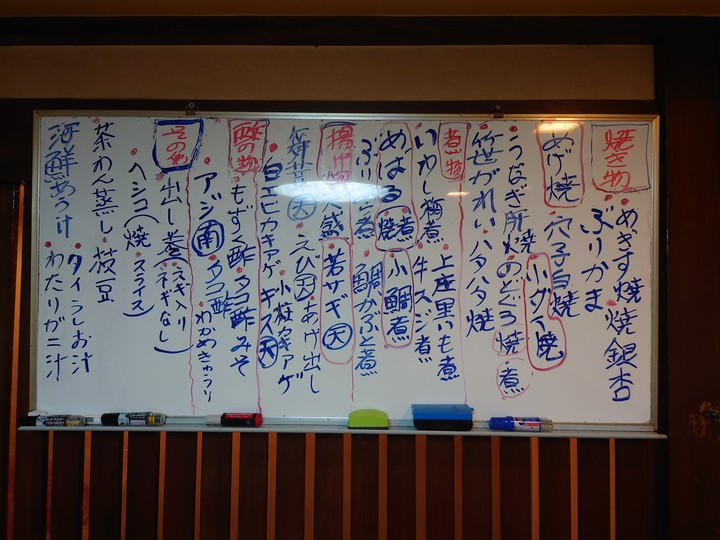 焼き物
めぎす焼 焼銀杏
ぶりかま
あげ焼 穴子白焼
小グイ焼
うなぎ肝焼 のどぐろ 焼 煮
笹がれい ハタハタ焼
煮物
上庄里いも煮
いわし梅煮 牛スジ煮
めばる 焼 煮 小鯛煮
鯛かぶと煮
揚げ物
若サギ 天
えび 天 あげ出し
小柱カキアゲ
白エビカキアゲ キス 天
酢の物
もずく酢 タコ酢みそ
アジ 南 タコ酢 わかめきゅうり
その他
出し巻 (ネギ入り ネギなし)
ヘシコ (焼 スライス)
茶わん蒸し 枝豆
海鮮あつけ タイうしお汁
わたりガニ汁